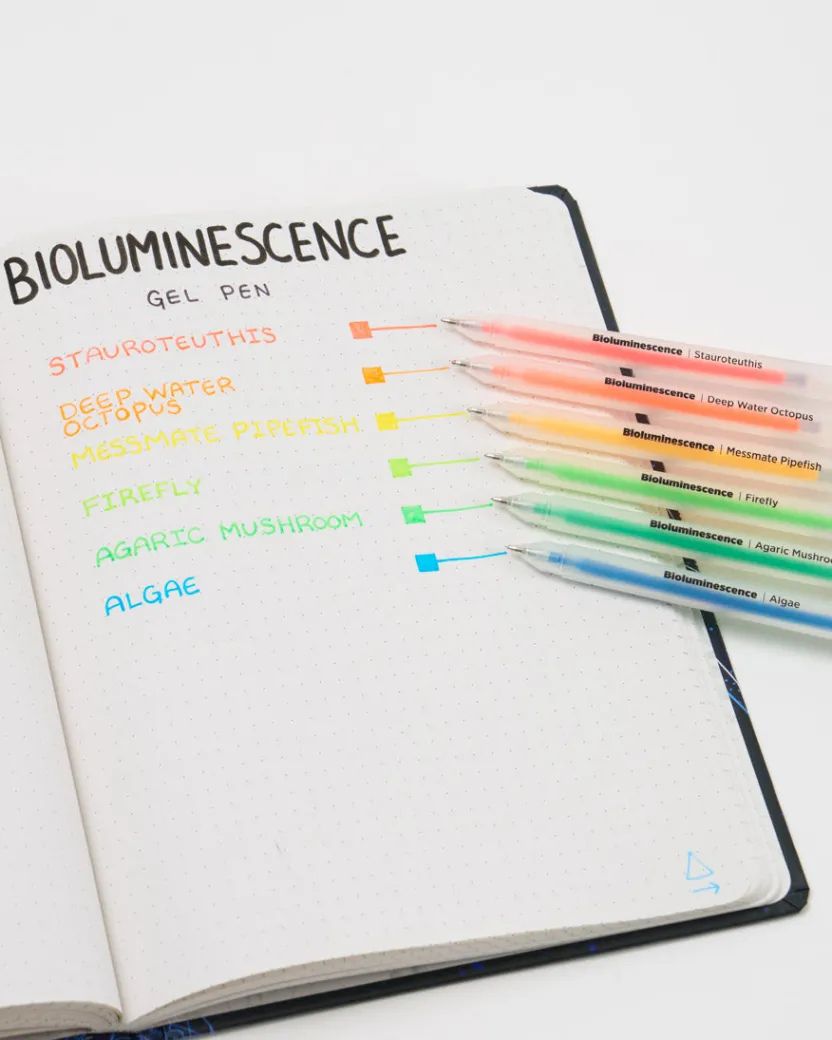 BIOLUMINESCENCE
GEL PEN
STAUROTEUTHIS
DEEP WATER
OCTOPUS
MESSMATE PIPEFISH
FIREFLY
AGARIC MUSHROOM
ALGAE
Bioluminescence | Stauroteuthis
Bioluminescence | Deep Water Octopus
Bioluminescence | Messmate Pipefish
Bioluminescence | Firefly
Bioluminescence | Agaric Mushroo
Bioluminescence | Algae